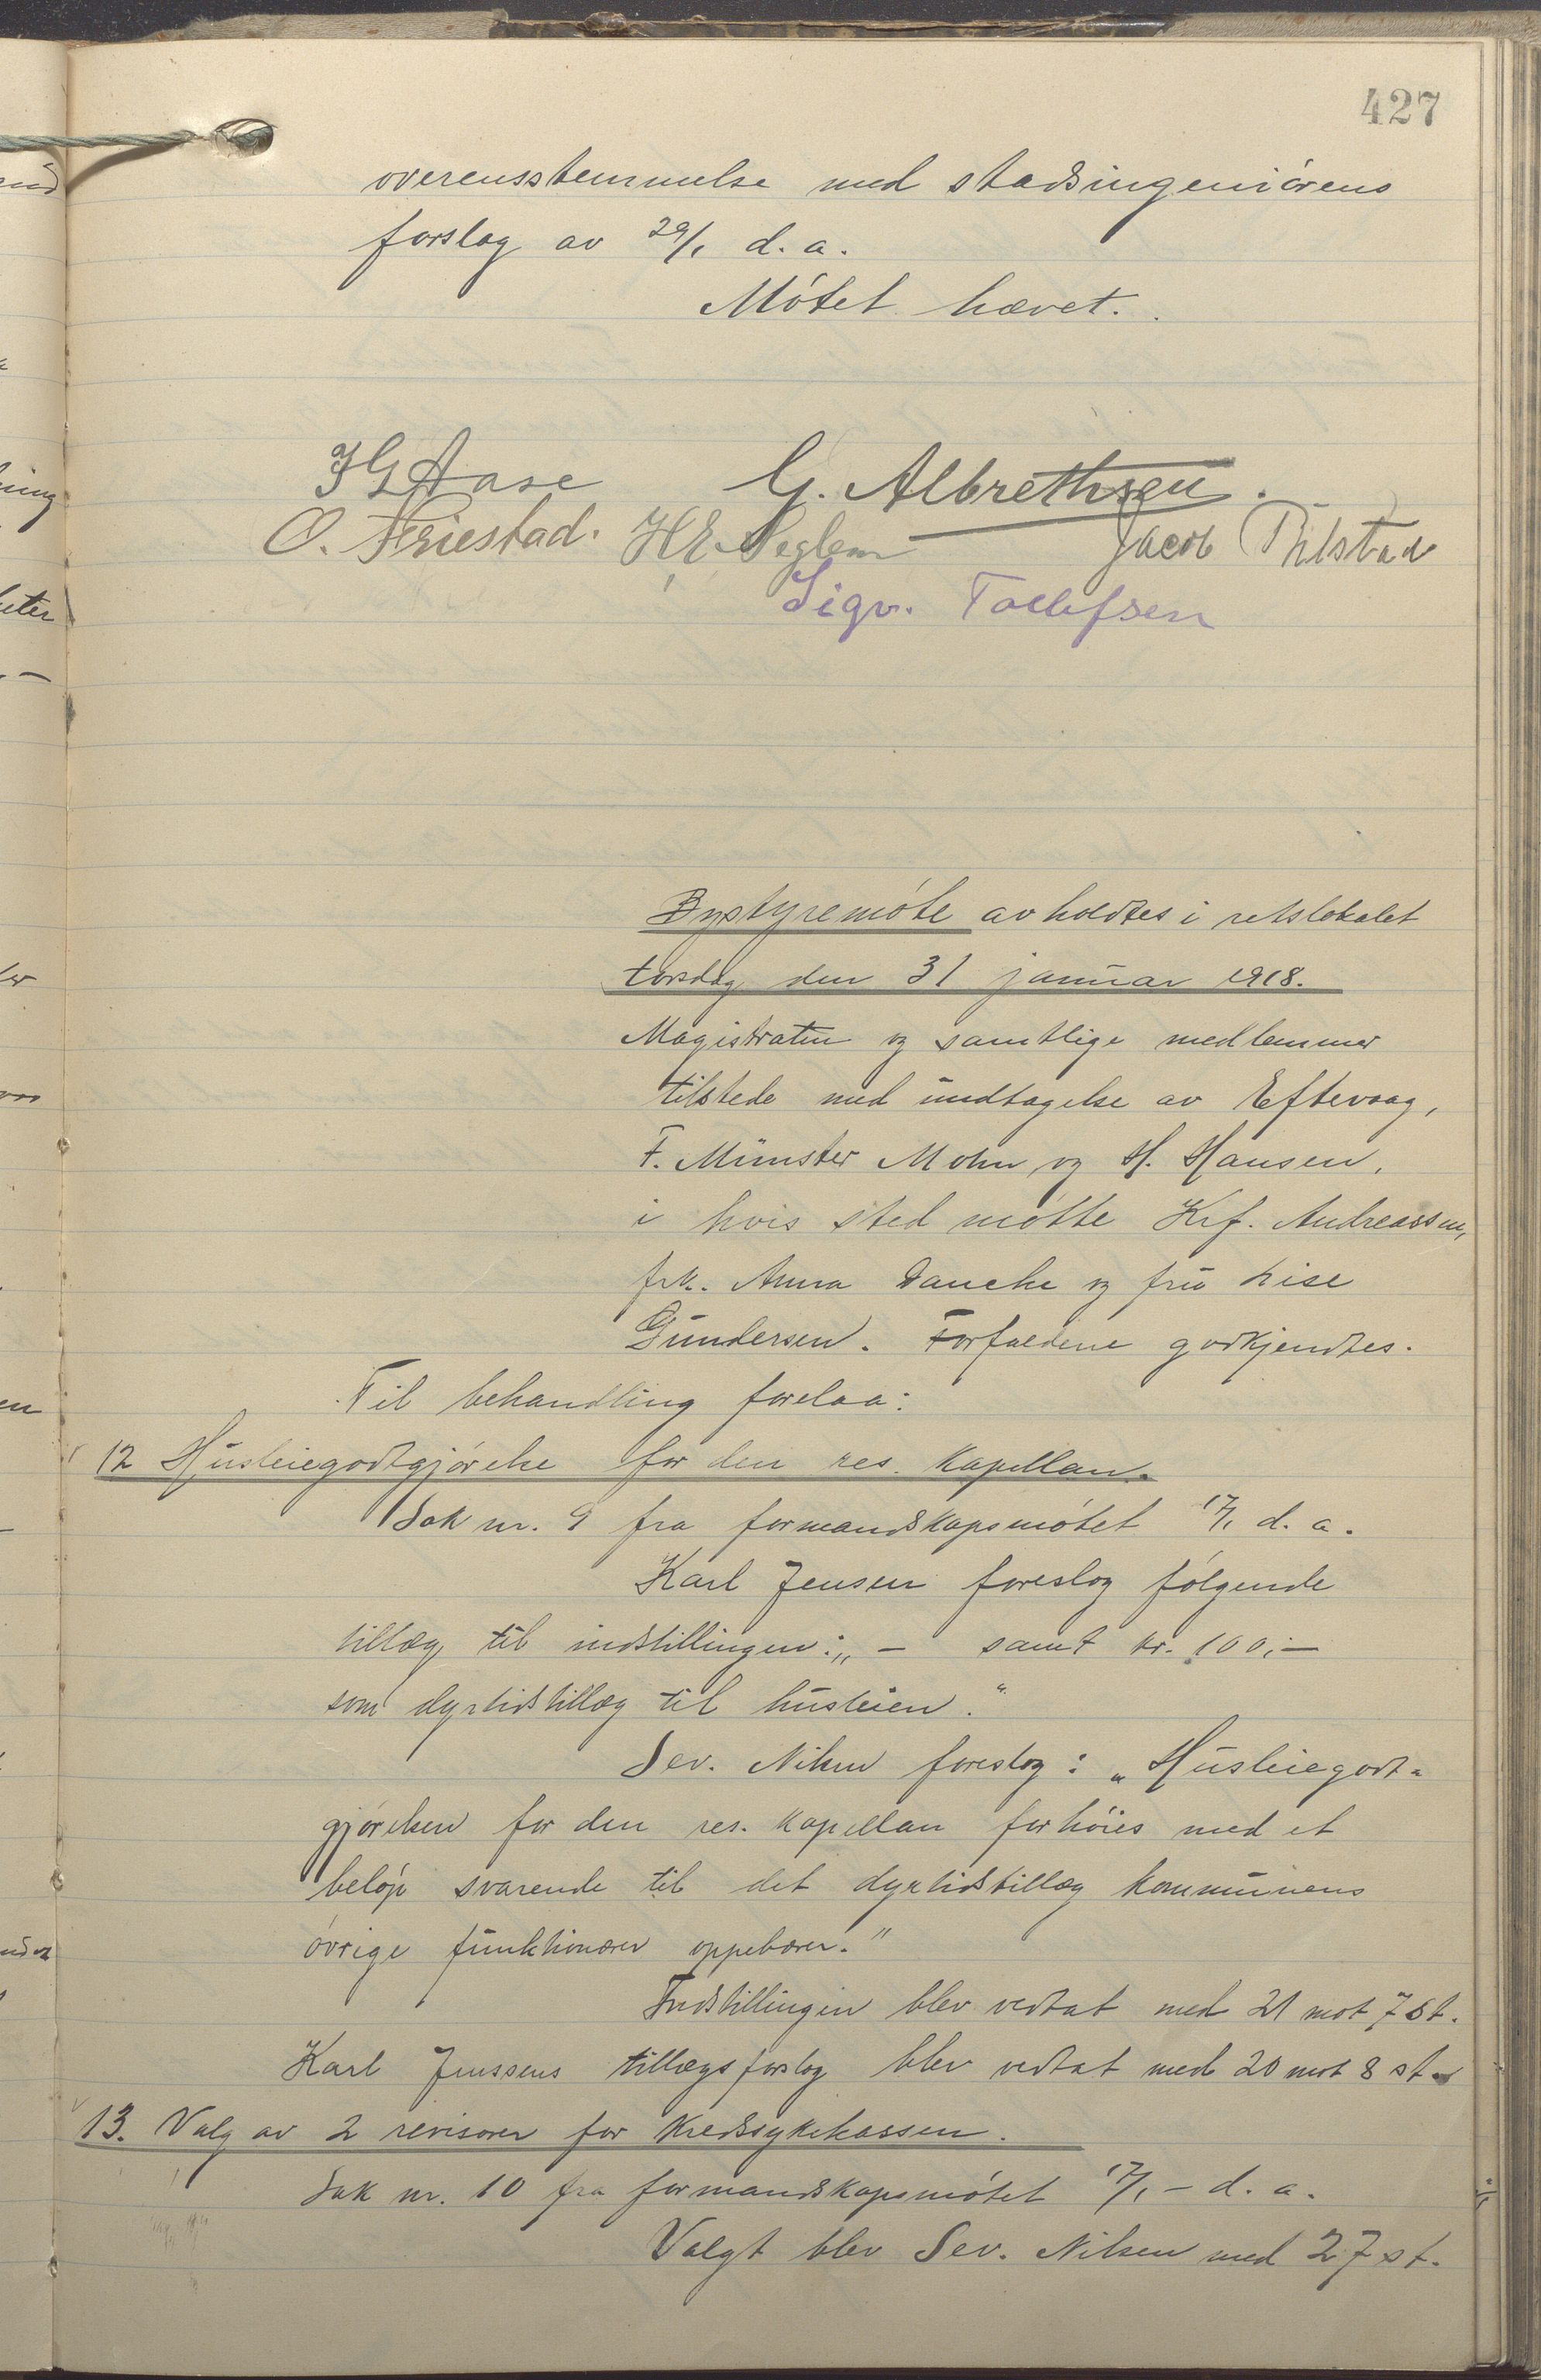 427
overensstemmelse med stadsingeniørens
forslag av 29/1 d. a.
Møtet hævet.
I G Aase G. Albrethsen.
O. Friestad. H. E. Seglem Jacob Tilstad
Sigv. Tollefsen
Bystyremøte avholdtes i retslokalet
torsdag den 31 januar 1918.
Magistraten og samtlige medlemmer
tilstede med undtagelse av Eftevaag,
F. Münster Mohn og H. Hansen,
i hvis sted møtte Krf. Andreassen,
frk. Anna Danche og fru Lise
Gundersen. Forfaldene godkjendtes.
Til behandling forelaa:
12 Husleiegodtgjørelse for den res. kapellan.
Sak nr. 9 fra formandskapsmøtet 17/1 d. a.
Karl Jensen foreslog følgende
tillæg til indstillingen: „ – samt kr. 100,–
som dyrtidstillæg til husleien.“
Sev. Nilsen foreslog: „Husleiegodt-
gjørelsen for den res. kapellan forhøies med et
beløp svarende til det dyrtidstillæg kommunens
øvrige funktionærer oppebærer."
Indstillingen blev vedtat med 21 mot 7 st.
Karl Jenssens tillægsforslag blev vedtat med 20 mot 8 st.
13. Valg av 2 revisorer for kredssykekassen.
Sak nr. 10 fra formandskapsmøtet 17/1 – d. a.
Valgt blev Sev. Nilsen med 27 st.